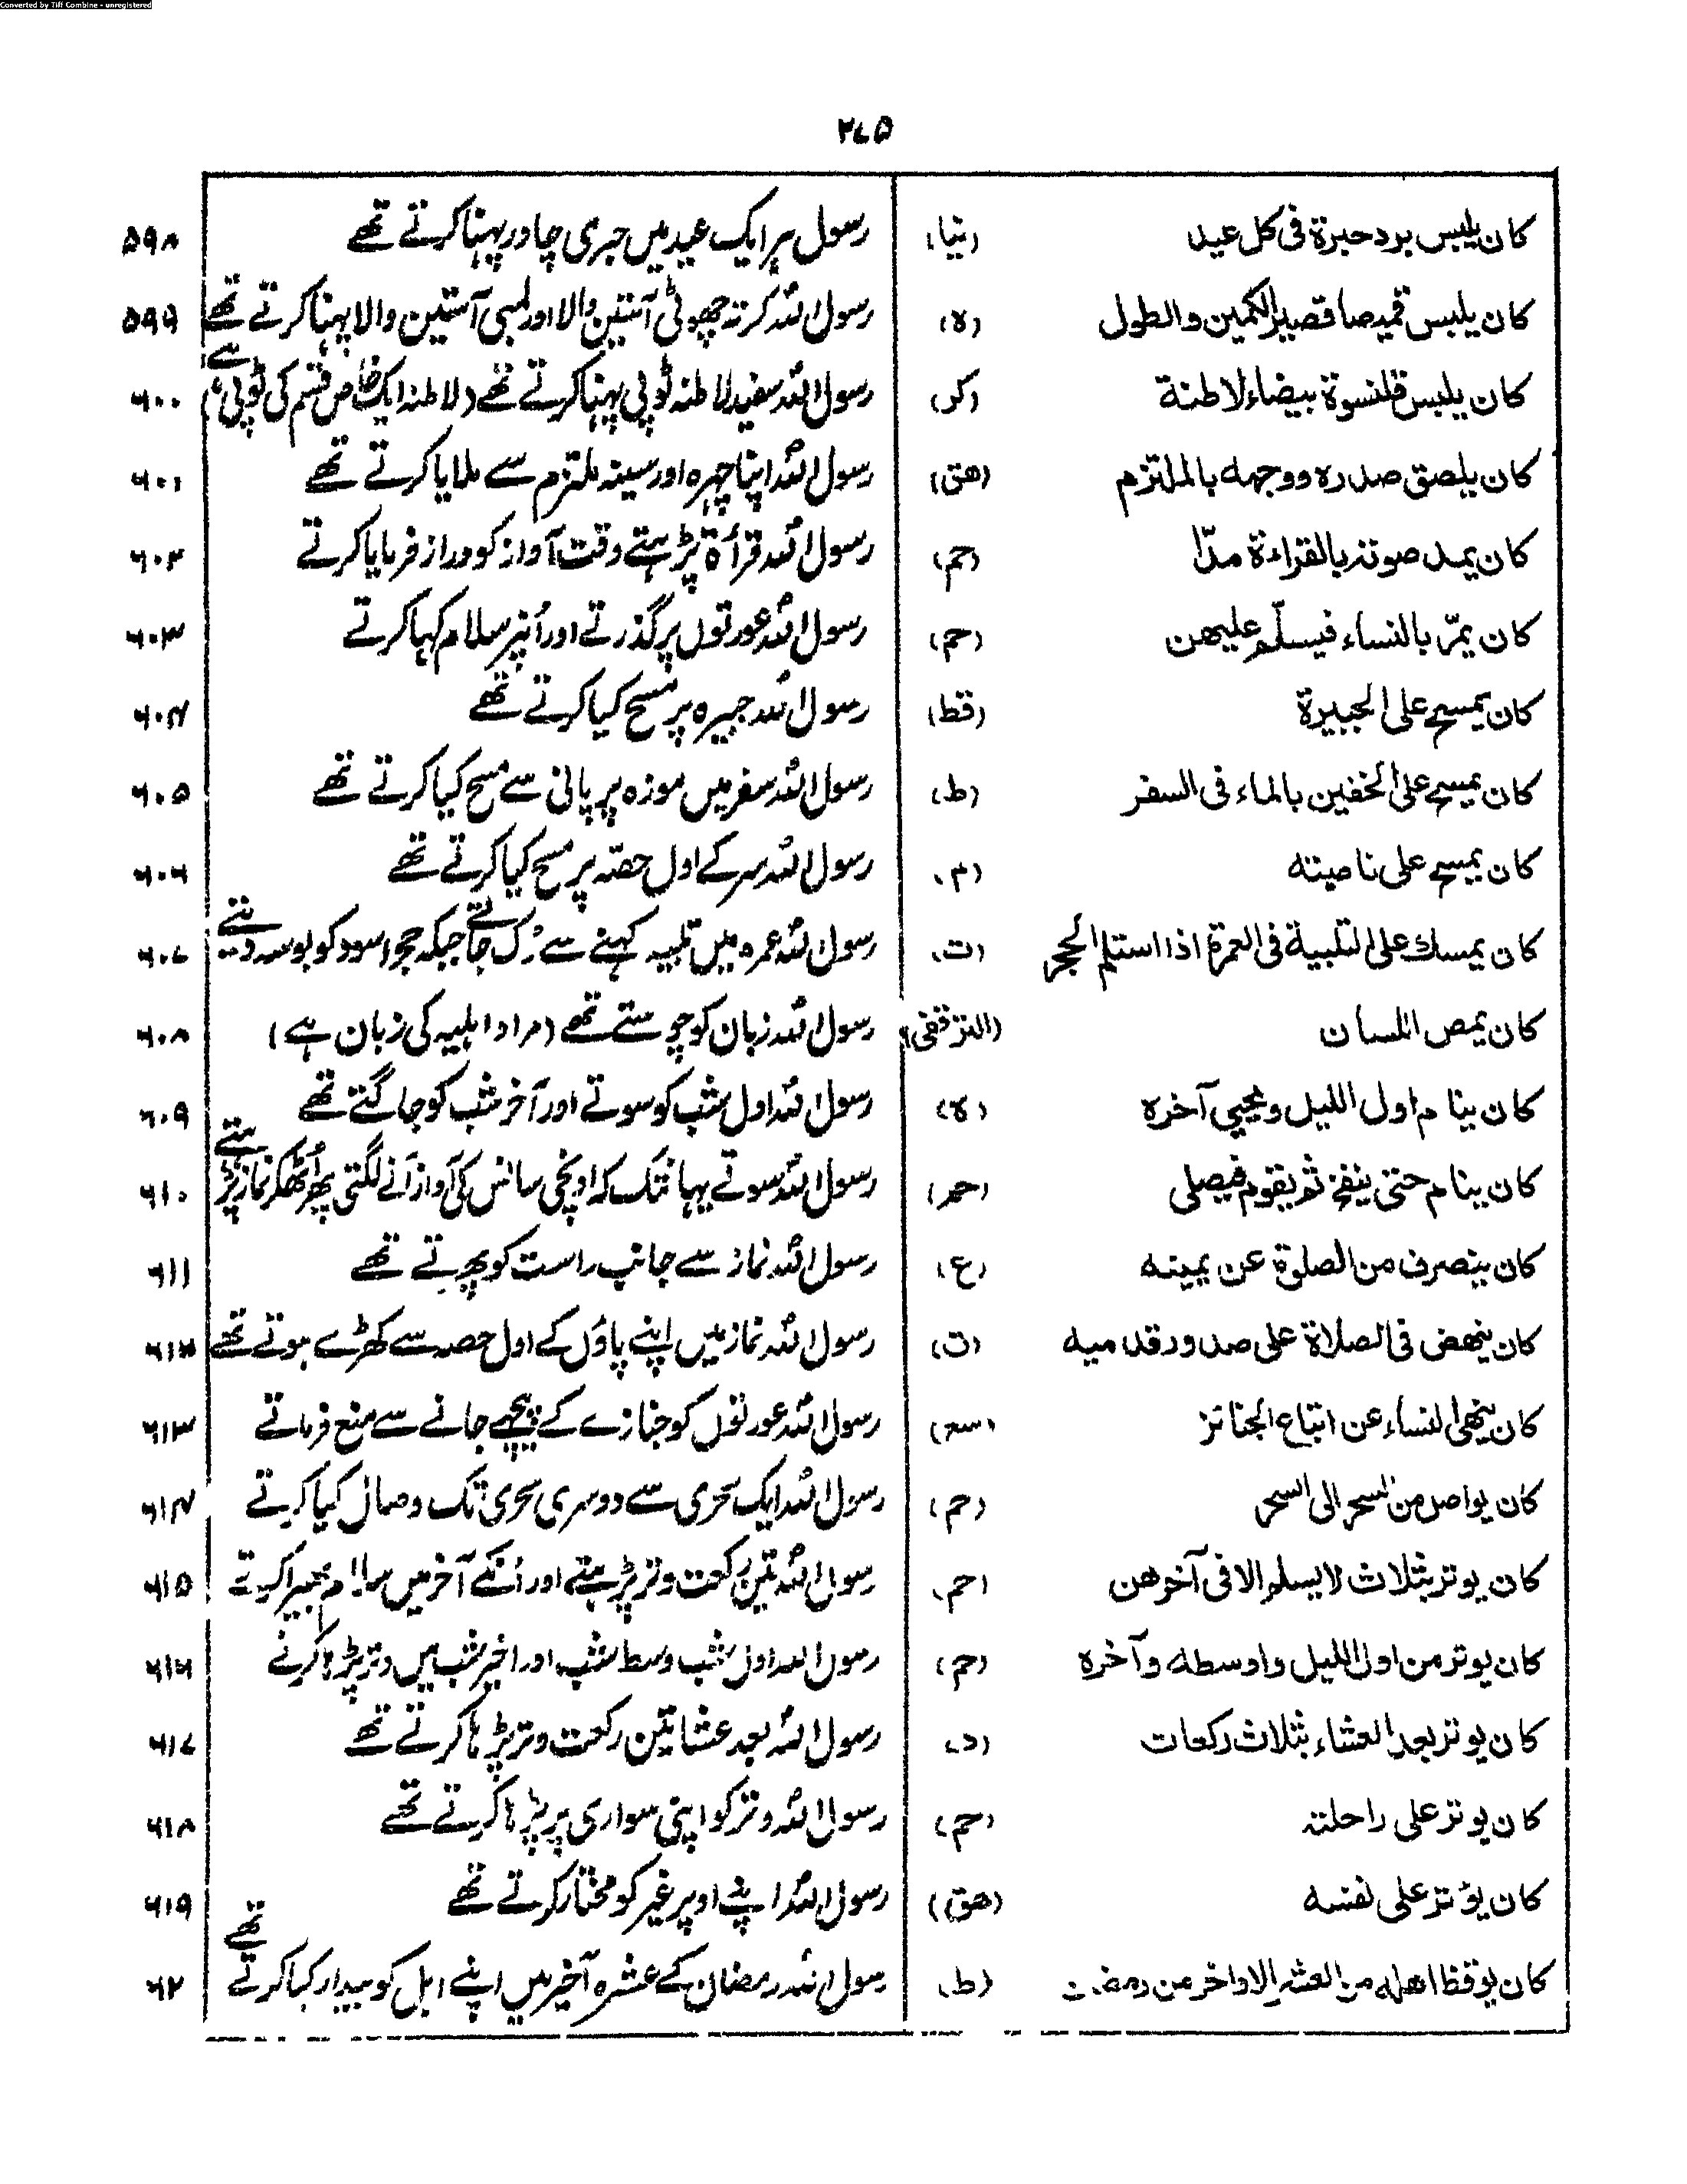 Converted by Tiff Combine - unregistered
۲۷۵
كان يلبس برد حبرة فى كل عيد (نيا) رسول ہر ایک عید میں حبری چادر پہنا کرتے تھے ۵۹۸
كان يلبس قميصا قصير الكمين والطول (ه) رسول اللہ کرتہ چھوٹی آستین والا اور لمبی آستین والا پہنا کرتے تھے ۵۹۹
كان يلبس قلنسوة بيضاء لاطئة (كر) رسول اللہ سفید لاطئہ ٹوپی پہنا کرتے تھے (لاطئہ ایک خاص قسم کی ٹوپی ہے) ۶۰۰
كان يلصق صدره ووجهه بالملتزم (هق) رسول اللہ اپنا چہرہ اور سینہ ملتزم سے ملایا کرتے تھے ۶۰۱
كان يمد صوته بالقراءة مدّا (حم) رسول اللہ قرأۃ پڑہتے وقت آواز کو دراز فرمایا کرتے ۶۰۲
كان يمرّ بالنساء فيسلّم عليهن (حم) رسول اللہ عورتوں پر گذرتے اور اُنپر سلام کہا کرتے ۶۰۳
كان يمسح على الجبيرة (قط) رسول اللہ جبیرہ پر مسح کیا کرتے تھے ۶۰۴
كان يمسح على الخفين بالماء فى السفر (ط) رسول اللہ سفر میں موزہ پر پانی سے مسح کیا کرتے تھے ۶۰۵
كان يمسح على ناصيته (م) رسول اللہ سر کے اول حصّہ پر مسح کیا کرتے تھے ۶۰۶
كان يمسك على التلبية فى العمرة اذا استلم الحجر (ت) رسول اللہ عمرہ میں تلبیہ کہنے سے رُک جاتے جبکہ حجر اسود کو بوسہ دیتے ۶۰۷
كان يمص اللسان (الترقفى) رسول اللہ زبان کو چوستے تھے (مراد اہلیہ کی زبان ہے) ۶۰۸
كان ينام اول الليل ويحيى آخره (ه) رسول اللہ اول شب کو سوتے اور آخر شب کو جاگتے تھے ۶۰۹
كان ينام حتى ينفخ ثم يقوم فيصلى (حم) رسول اللہ سوتے یہانتک کہ اونچی سانس کی آواز آنے لگتی پھر اُٹھکر نماز پڑہتے ۶۱۰
كان ينصرف من الصلوة عن يمينه (ع) رسول اللہ نماز سے جانب راست کو پھرتے تھے ۶۱۱
كان ينهض فى الصلاة على صدور قدميه (ت) رسول اللہ نماز میں اپنے پاؤں کے اول حصہ سے کھڑے ہوتے تھے ۶۱۲
كان ينهى النساء عن اتباع الجنائز (سعر) رسول اللہ عورتوں کو جنازے کے پیچھے جانے سے منع فرماتے ۶۱۳
كان يواصل من السحر الى السحر (حم) رسول اللہ ایک سحری سے دوسری سحری تک وصال کیا کرتے ۶۱۴
كان يوتر بثلاث لا يسلم الا فى آخرهن (حم) رسول اللہ تین رکعت وتر پڑہتے اور اُنکے آخر میں سلام پھیرا کرتے ۶۱۵
كان يوتر من اول الليل واوسطه وآخره (حم) رسول اللہ اول شب وسط شب اور اخیر شب میں وتر پڑہا کرتے ۶۱۶
كان يوتر بعد العشاء بثلاث ركعات (د) رسول اللہ بعد عشا تین رکعت وتر پڑہا کرتے تھے ۶۱۷
كان يوتر على راحلته (حم) رسول اللہ وتر کو اپنی سواری پر پڑہا کرتے تھے ۶۱۸
كان يؤثر على نفسه (هق) رسول اللہ اپنے اوپر غیر کو مختار کرتے تھے ۶۱۹
كان يوقظ اهله من العشر الاواخر من رمضان (ط) رسول اللہ رمضان کے عشرہ آخیر میں اپنے اہل کو بیدار کیا کرتے تھے ۶۲